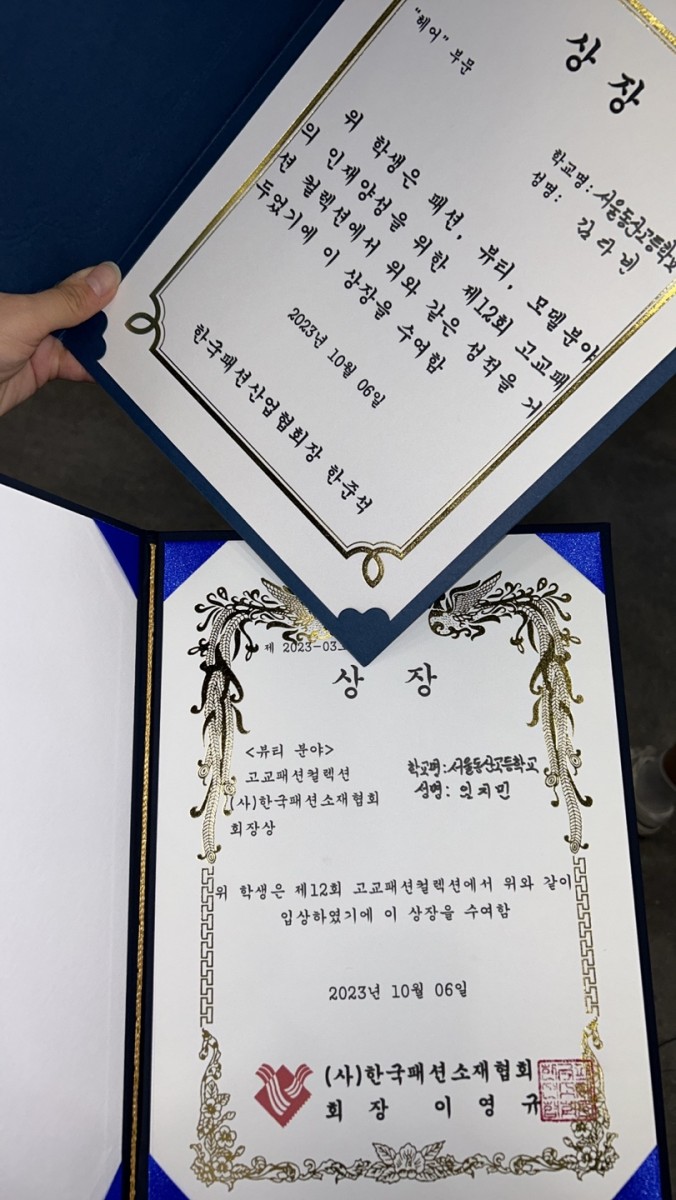 "헤어" 부문
상 장
학교명: 서울동산고등학교
성명: 김라빈
위 학생은 패션, 뷰티, 모델분야
의 인재양성을 위한 제12회 고교패
션 컬렉션에서 위와 같은 성적을 거
두었기에 이 상장을 수여함
2023년 10월 06일
한국패션산업협회장 한준석
제 2023-03
상 장
<뷰티 분야>
고교패션컬렉션
(사)한국패션소재협회
회장상
학교명:서울동산고등학교
성명: 임지민
위 학생은 제12회 고교패션컬렉션에서 위와 같이
입상하였기에 이 상장을 수여함
2023년 10월 06일
(사)한국패션소재협회
회 장 이 영 규